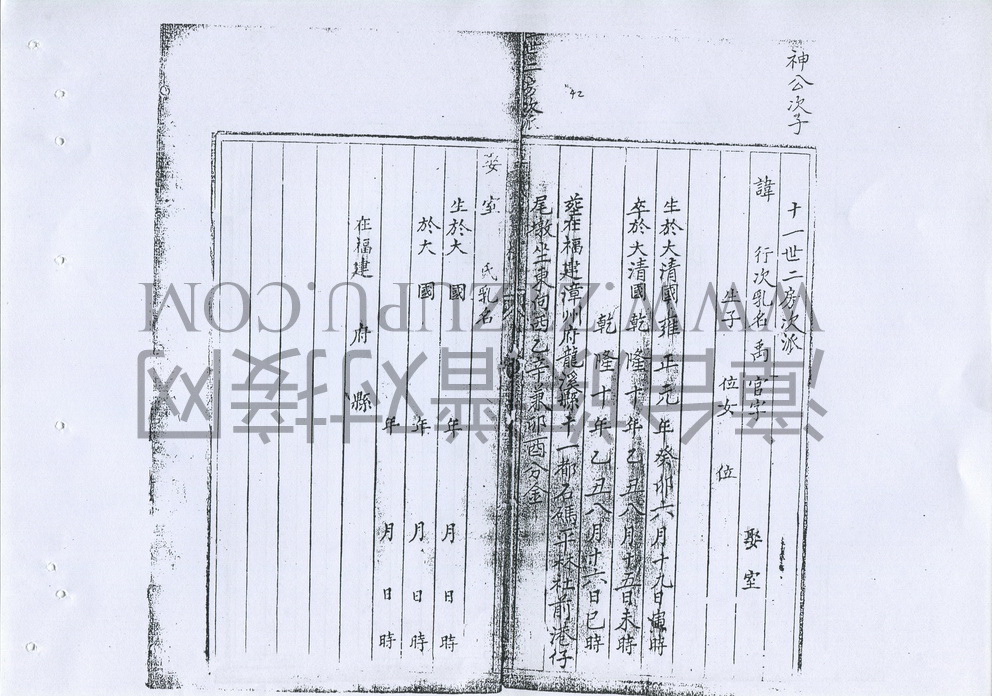 神公次子
十一世二房次派
諱 行次乳名禹 官字 娶室
生子 位女 位
生於大清國雍正元年癸卯六月十九日寅時
卒於大清國乾隆十年乙丑八月十五日未時
乾隆十年乙丑八月廿六日巳時
塟在福建漳州府龍溪縣十一都石碼平林社前港仔
尾墩坐東向西乙辛兼卯酉分金
世二房次派
42
娶室 氏乳名
生於大 國 年 月 日 時
於大 國 年 月 日 時
年 月 日 時
在福建 府 縣
WWW.ZZZUPU.COM
漳台族谱对接网